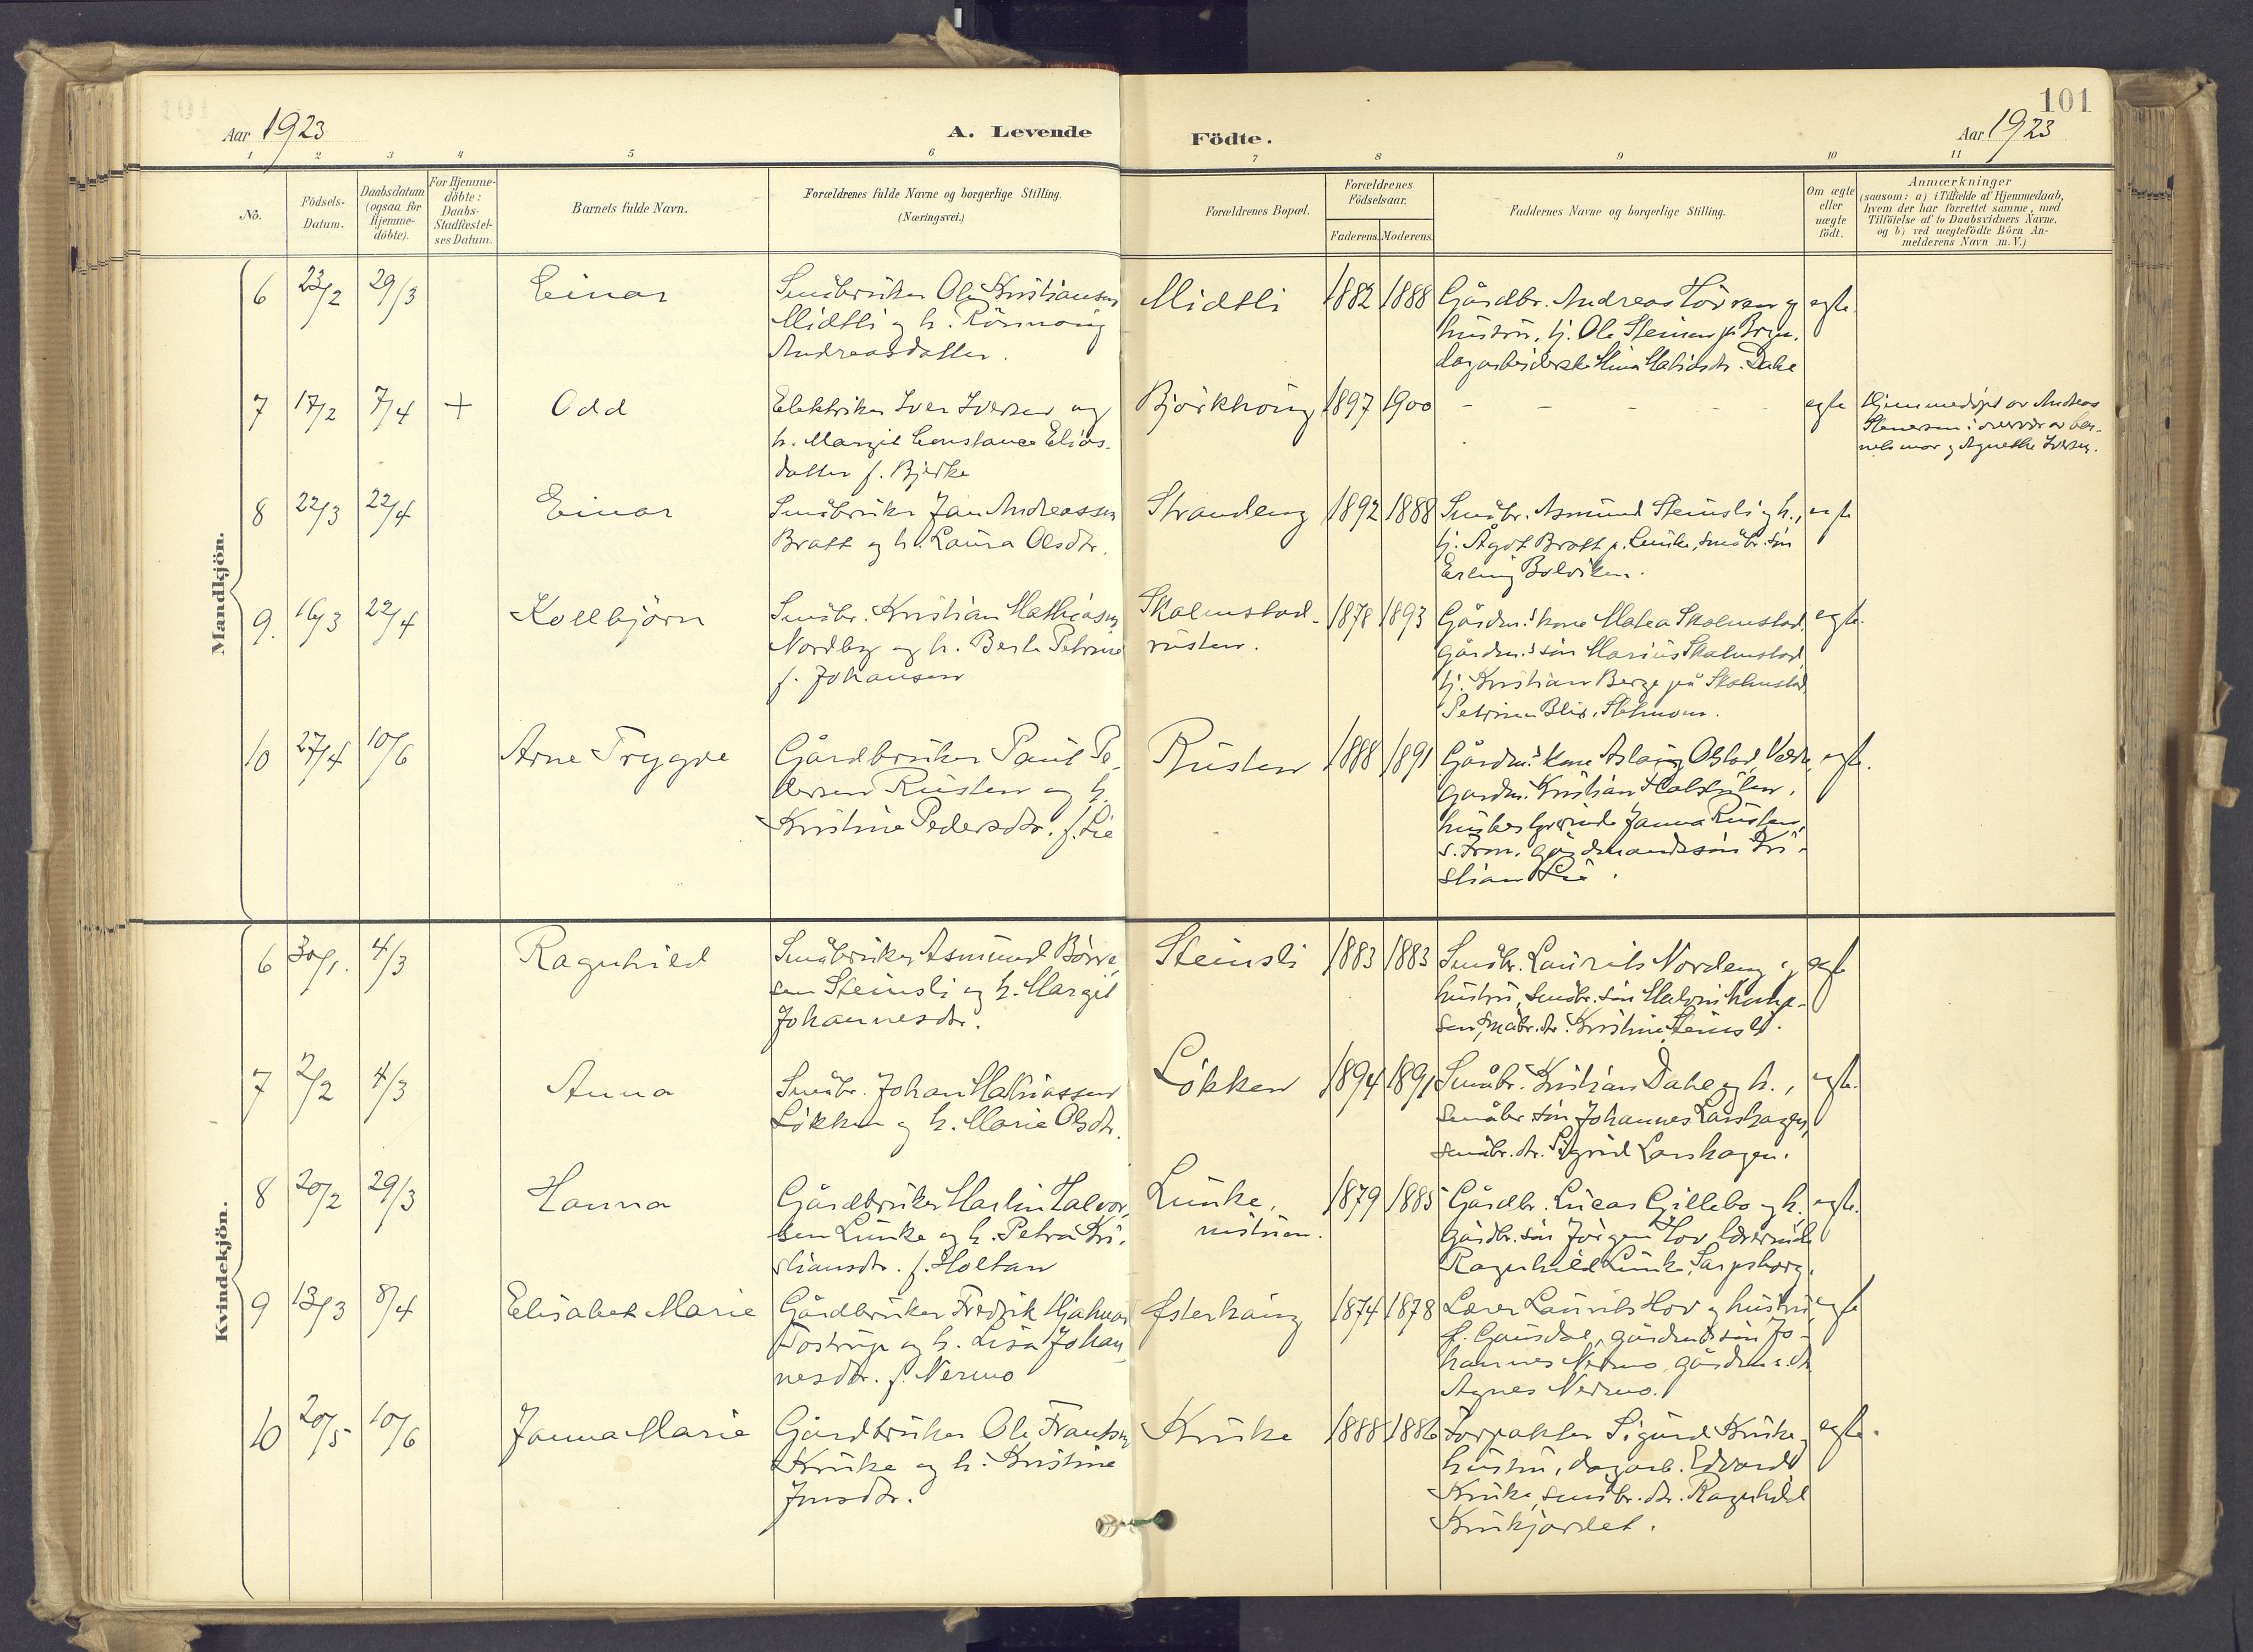 101
Aar 1923
A. Levende Födte.
Aar 1923
1 2 3 4 5 6 7 8 9 10 11
No.
Födsels-
Datum.
Daabsdatum
(ogsaa for
Hjemme-
döbte).
For Hjemme-
döbte:
Daabs-
Stadfæstel-
ses Datum.
Barnets fulde Navn.
Forældrenes fulde Navne og borgerlige Stilling.
(Næringsvei.)
Forældrenes Bopæl.
Forældrenes
Födselsaar.
Faderens. Moderens.
Faddernes Navne og borgerlige Stilling.
Om ægte
eller
uægte
födt.
Anmærkninger
(saasom: a) i Tilfælde af Hjemmedaab,
hvem der har forrettet samme, med
Tilföielse af to Daabsvidners Navne,
og b) ved uægtefödte Börn An-
melderens Navn m. V.)
Mandkjön.
6 23/2 29/3 Einar
Småbruker Ole Kristiansen
Midtli og h. Rönnaug
Andreasdatter.
Midtli 1882 1888
Gårdbr. Andreas Hövren og
hustru, tj. Ole Steinen på Bryn,
dagarbeiderske Mina Dahe
egte.
7 17/2 7/4 + Odd
Elektriker Iver Iversen og
h. Margit Constance Elias-
datter f. Bjerke
Björkhaug 1897 1900 - - - - -
egte
Hjemmedöpt av Andreas
Stenersen i overvær av bar-
nets mor og Agnethe Iversen.
8 22/3 22/4 Einar
Småbruker Jan Andreassen
Bratt og h. Laura Olsdtr.
Strandeng 1892 1888
Småbr. Asmund Steinsli og h.,
tj. Ågot Bratt p. Lunke, småbr. sön
Erling Bolviken.
egte
9. 16/3 22/4 Kollbjörn
Småbr. Kristian Mathiasen
Nordby og h. Berte Petrine
f. Johansen
Skalmstad-
rusten.
1878 1893
Gårdm.s kone Matea Skalmstad,
gårdm.s sön Marius Skalmstad,
tj. Kristian Berge på Skalmstad,
Petrine Blix,
egte.
10 27/4 10/6 Arne Tryggve
Gårdbruker Paul Pe-
dersen Rusten og h.
Kristine Pedersdtr. f. Lie
Rusten 1888 1891
Gårdm.s kone Aslaug Olstad
gårdm. Kristian
husbestyrerinde Janna Rusten,
s. Fron, gårdmandssön Kri-
stian Lie.
egte.
Kvindekjön.
6 30/1. 4/3 Ragnhild
Småbruker Asmund Börre-
sen Steinsli og h. Margit
Johannesdtr.
Steinsli 1883 1883
Småbr. Laurits Nordeng og
hustru, småbr. sön
sen, småbr. dtr. Kristine Steinsli.
egte
7 2/2 4/3 Anna
Småbr. Johan Mathiassen
Lökken og h. Marie Olsdtr.
Lökken 1894 1891
Småbr. Kristian Dahe og h.,
småbr. sön Johannes Larshagen,
småbr. dtr. Sigrid Larshagen.
egte.
8 20/2 29/3 Hanna
Gårdbruker Martin Halvor-
sen Lunke og h. Petra Kri-
stiansdtr. f. Holtan
Lunke,
1879 1885
Gårdbr. Lucas Gillebo og h.
gårdbr. sön Jörgen Hov, lærerinde
Ragnhild Lunke, Sarpsborg.
egte.
9 13/3 8/4 Elisabet Marie
Gårdbruker Fredrik Hjalmar
Tostrup og h. Lisa Johan-
nesdtr. f. Nermo
Østerhaug 1874 1878
Lærer Laurits Hov og hustru,
f. Gausdal, gårdmds sön Jo-
hannes Nermo, gårdm.s dtr.
Agnes Nermo.
egte
10 20/5 10/6 Janna Marie
Gårdbruker Ole Frantsen
Kruke og h. Kristine
Jensdtr.
Kruke 1888 1886
Forpakter Sigurd Kruke og
hustru, dagarb. Edvard
Kruke, småbr. dtr. Ragnhild
Krukjordet.
egte.